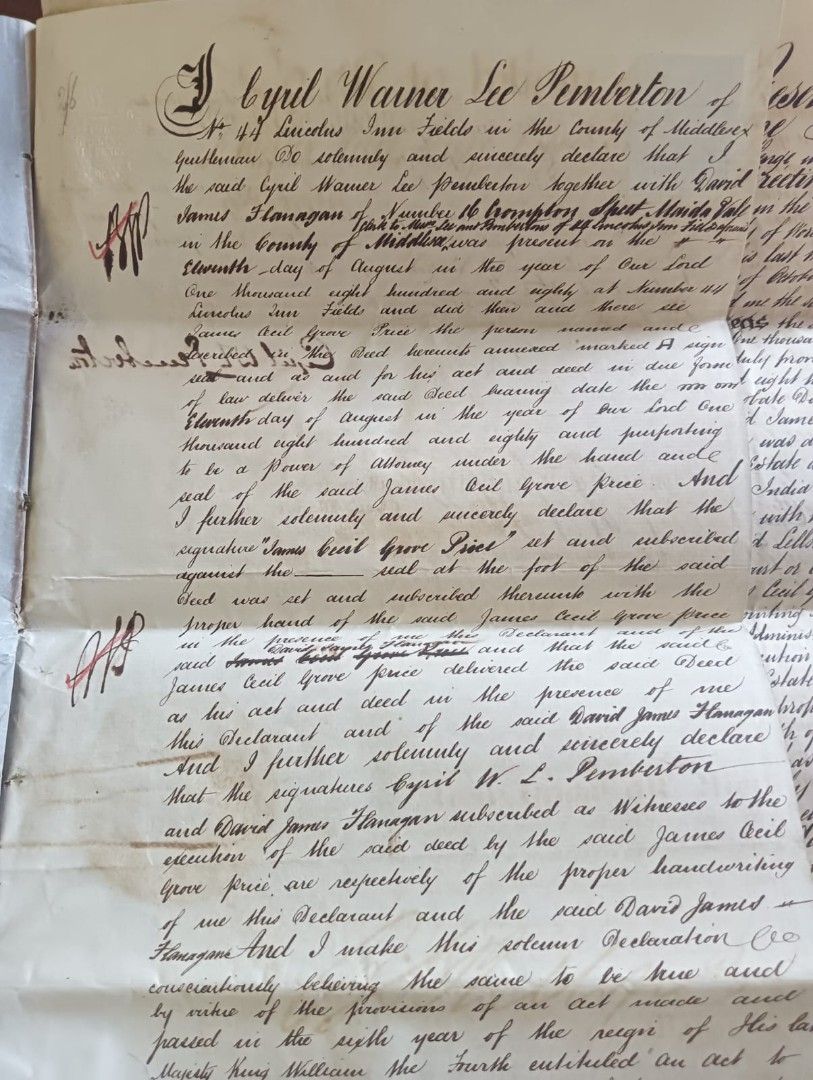 I Cyril Warner Lee Pemberton of
No. 44 Lincolns Inn Fields in the County of Middlesex
Gentleman Do solemnly and sincerely declare that I
the said Cyril Warner Lee Pemberton together with David
James Flanagan of Number 16 Crompton Street Maida Vale
Clerk to Messrs Lee and Pembertons of 44 Lincolns Inn Fields aforesaid
in the County of Middlesex was present on the
Eleventh day of August in the year of Our Lord
One thousand eight hundred and eighty at Number 44
Lincolns Inn Fields and did then and there see
James Cecil Grove Price the person named and
described in the Deed hereunto annexed marked A sign
seal and as and for his act and deed in due form
of law deliver the said Deed bearing date the
Eleventh day of August in the year of Our Lord One
thousand eight hundred and eighty and purporting
to be a Power of Attorney under the hand and
seal of the said James Cecil Grove Price. And
I further solemnly and sincerely declare that the
signature "James Cecil Grove Price" set and subscribed
against the seal at the foot of the said
Deed was set and subscribed thereunto with the
proper hand of the said James Cecil Grove Price
in the presence of me this Declarant and of the
David James Flanagan
said and that the said
James Cecil Grove Price delivered the said Deed
as his act and deed in the presence of me
this Declarant and of the said David James Flanagan
And I further solemnly and sincerely declare
that the signatures Cyril W. L. Pemberton
and David James Flanagan subscribed as Witnesses to the
execution of the said deed by the said James Cecil
Grove Price are respectively of the proper handwriting
of me this Declarant and the said David James
Flanagan And I make this solemn Declaration
consciously believing the same to be true and
by virtue of the provisions of an act made and
passed in the sixth year of the reign of His la
Majesty King William the Fourth entituled an act to